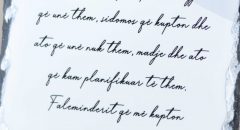 që unë them, sidomos që kupton dhe
ato që unë nuk them, madje dhe ato
që kam planifikuar të them.
Faleminderit që më kupton